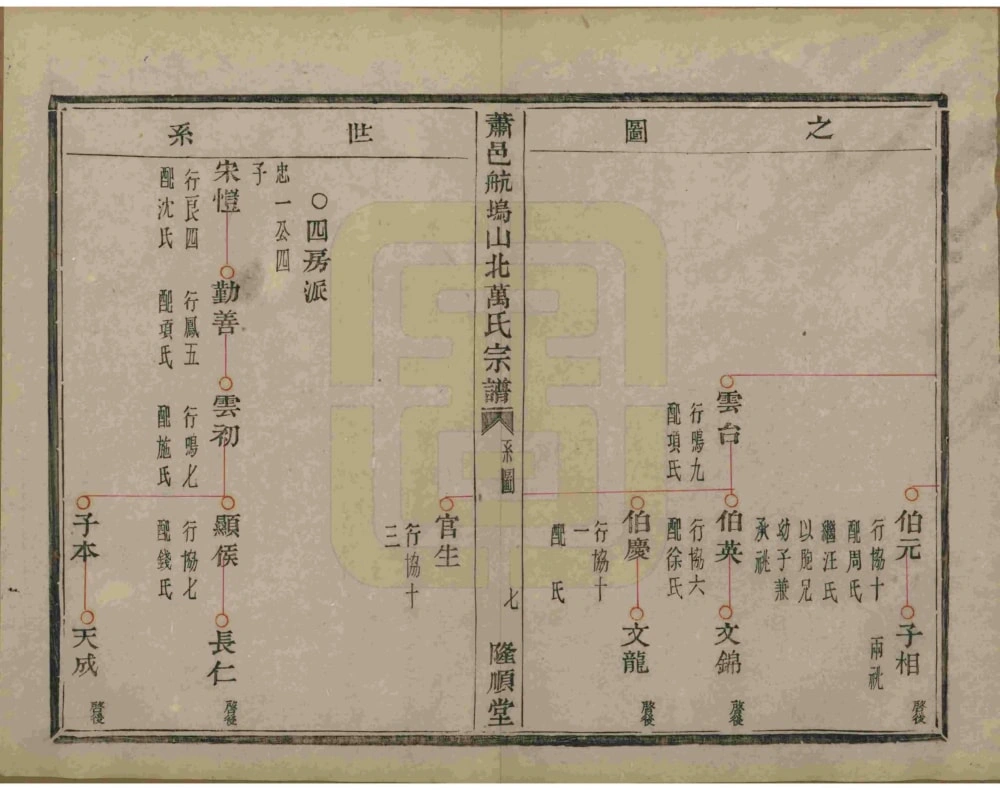 之
圖
伯元
行協十
配周氏
繼汪氏
以胞兄
幼子兼
承祧
子相
兩祧
啓後
雲台
行鳴九
配項氏
伯英
行協六
配徐氏
文錦
啓後
伯慶
行協十
一
配 氏
文龍
啓後
蕭邑航塢山北萬氏宗譜
系圖
七
隆順堂
世
系
官生
行協十
三
○四房派
忠一公四
子
宋愷
行良四
配沈氏
勤善
行鳳五
配項氏
雲初
行鳴七
配施氏
顯侯
行協七
配錢氏
長仁
啓後
子本
天成
啓後